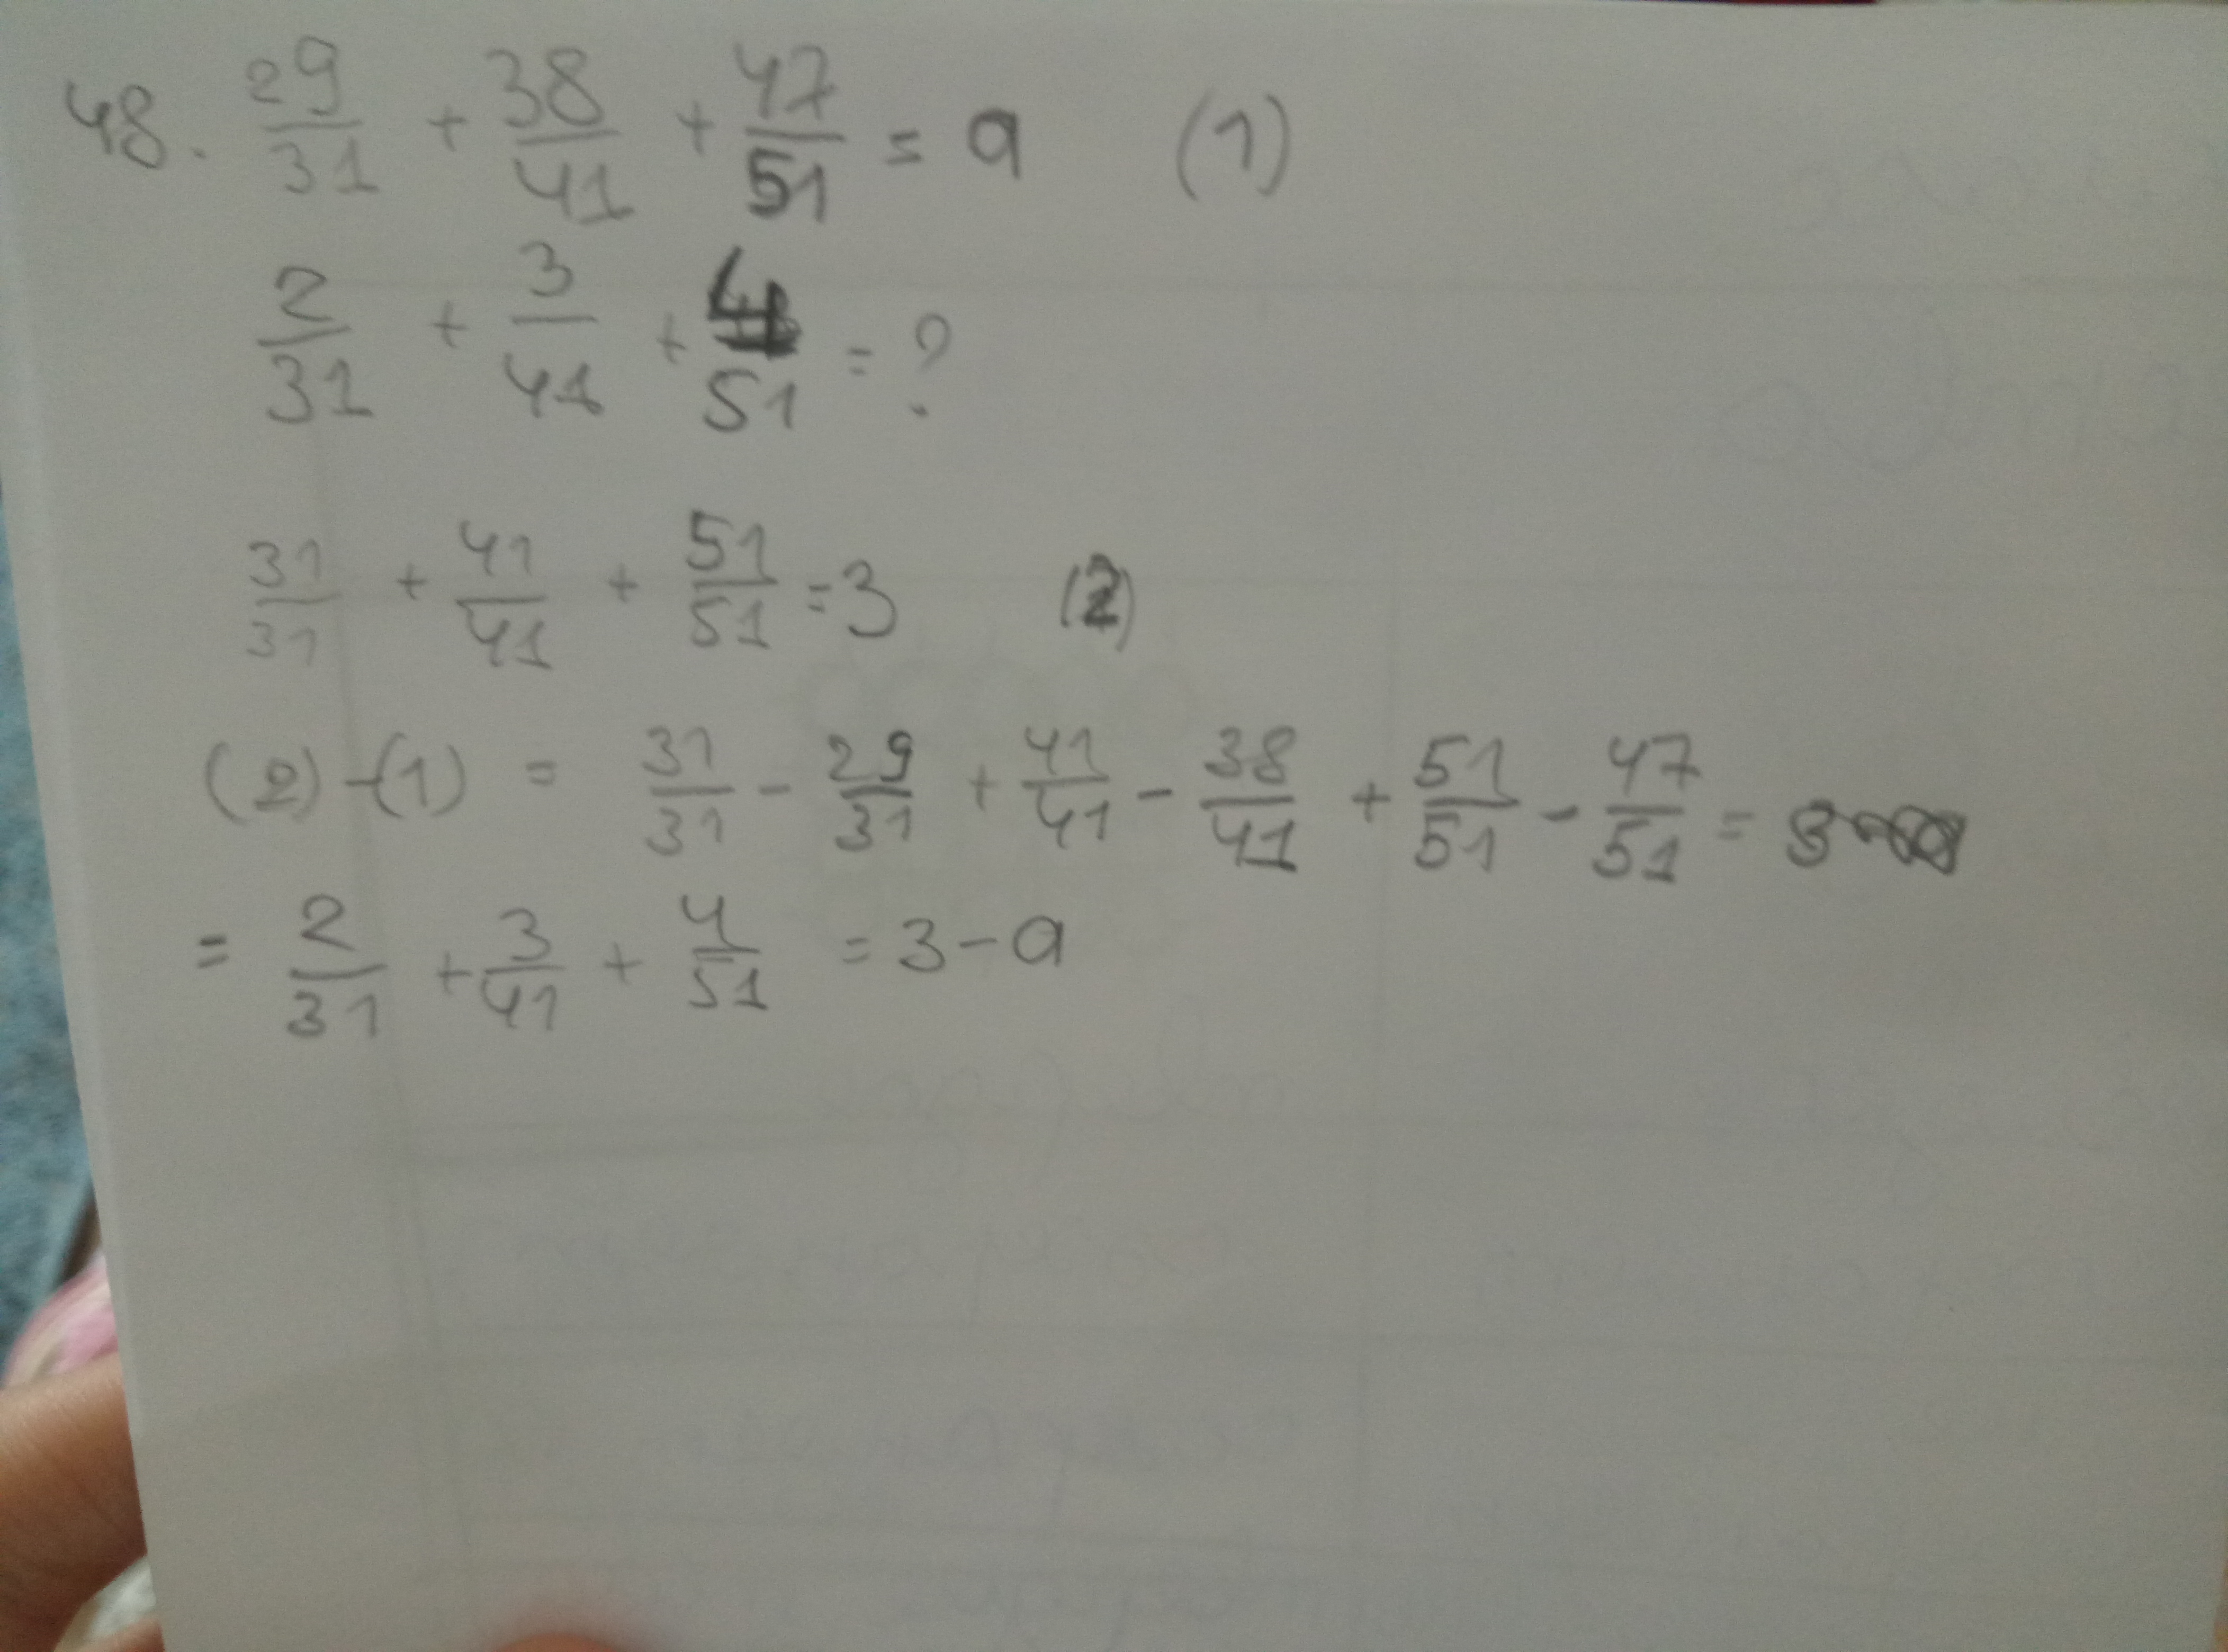 48. 29/31 + 38/41 + 47/51 = a (1)
2/31 + 3/41 + 4/51 = ?
31/31 + 41/41 + 51/51 = 3 (2)
(2) - (1) = 31/31 - 29/31 + 41/41 - 38/41 + 51/51 - 47/51 =
= 2/31 + 3/41 + 4/51 = 3 - a